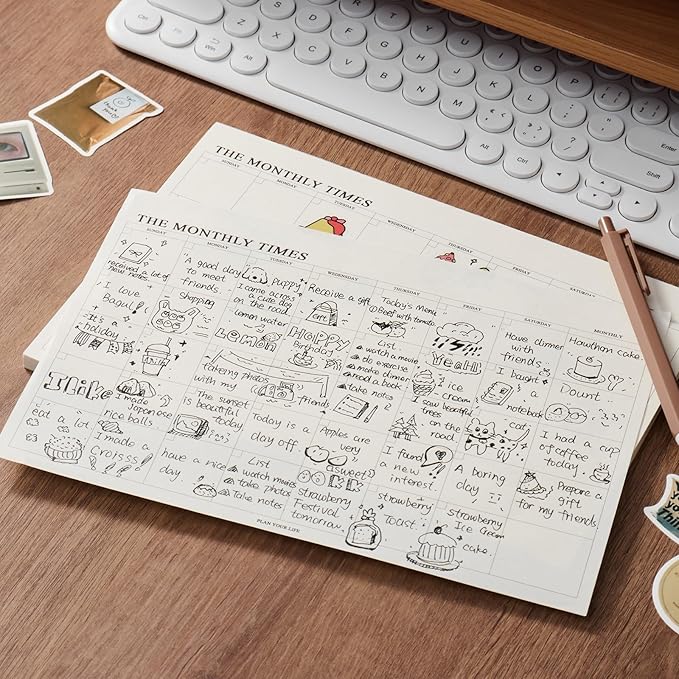 THE MONTHLY TIMES
SUNDAY
MONDAY
TUESDAY
WEDNESDAY
THURSDAY
FRIDAY
SATURDAY
THE MONTHLY TIMES
SUNDAY
MONDAY
TUESDAY
WEDNESDAY
THURSDAY
FRIDAY
SATURDAY
MONTHLY
received a lot of
new notes.
A good day
to meet
friends.
puppy
I came across
a cute dog
on the road
Receive a gift
Today's Menu
Beef with tomato
Have dinner
with
friends.
Hawthorn cake.
I love
Bagul!
shopping
lemon water
Lemon
Happy
Birthday
List
watch a movie
do exercise
make dinner
read a book
YEAH!
ice
cream
I bought
a
notebook
Dount
It's a
holiday
takeing photos
with my
friends
take notes
I saw beautiful
trees
on the
road
cat
I had a cup
of coffee
today.
I like
I made
Japanese
rice balls
The sunset
is beautiful
today
Today is a
day off.
Apples are
very
sweet
I found
a new
interest
A boring
day
Prepare a
gift
for my friends
eat a lot
I made a
Croisss
have a nice
day
List
watch movies
take photos
Take notes
strawberry
Festival
tomorrow
strawberry
Toast
strawberry
Ice Cream
cake.
PLAN YOUR LIFE
S
D
F
G
H
J
K
L
Z
X
C
V
B
N
M
Fn
Win
Alt
Alt
Ctrl
Ctrl
Enter
Shift